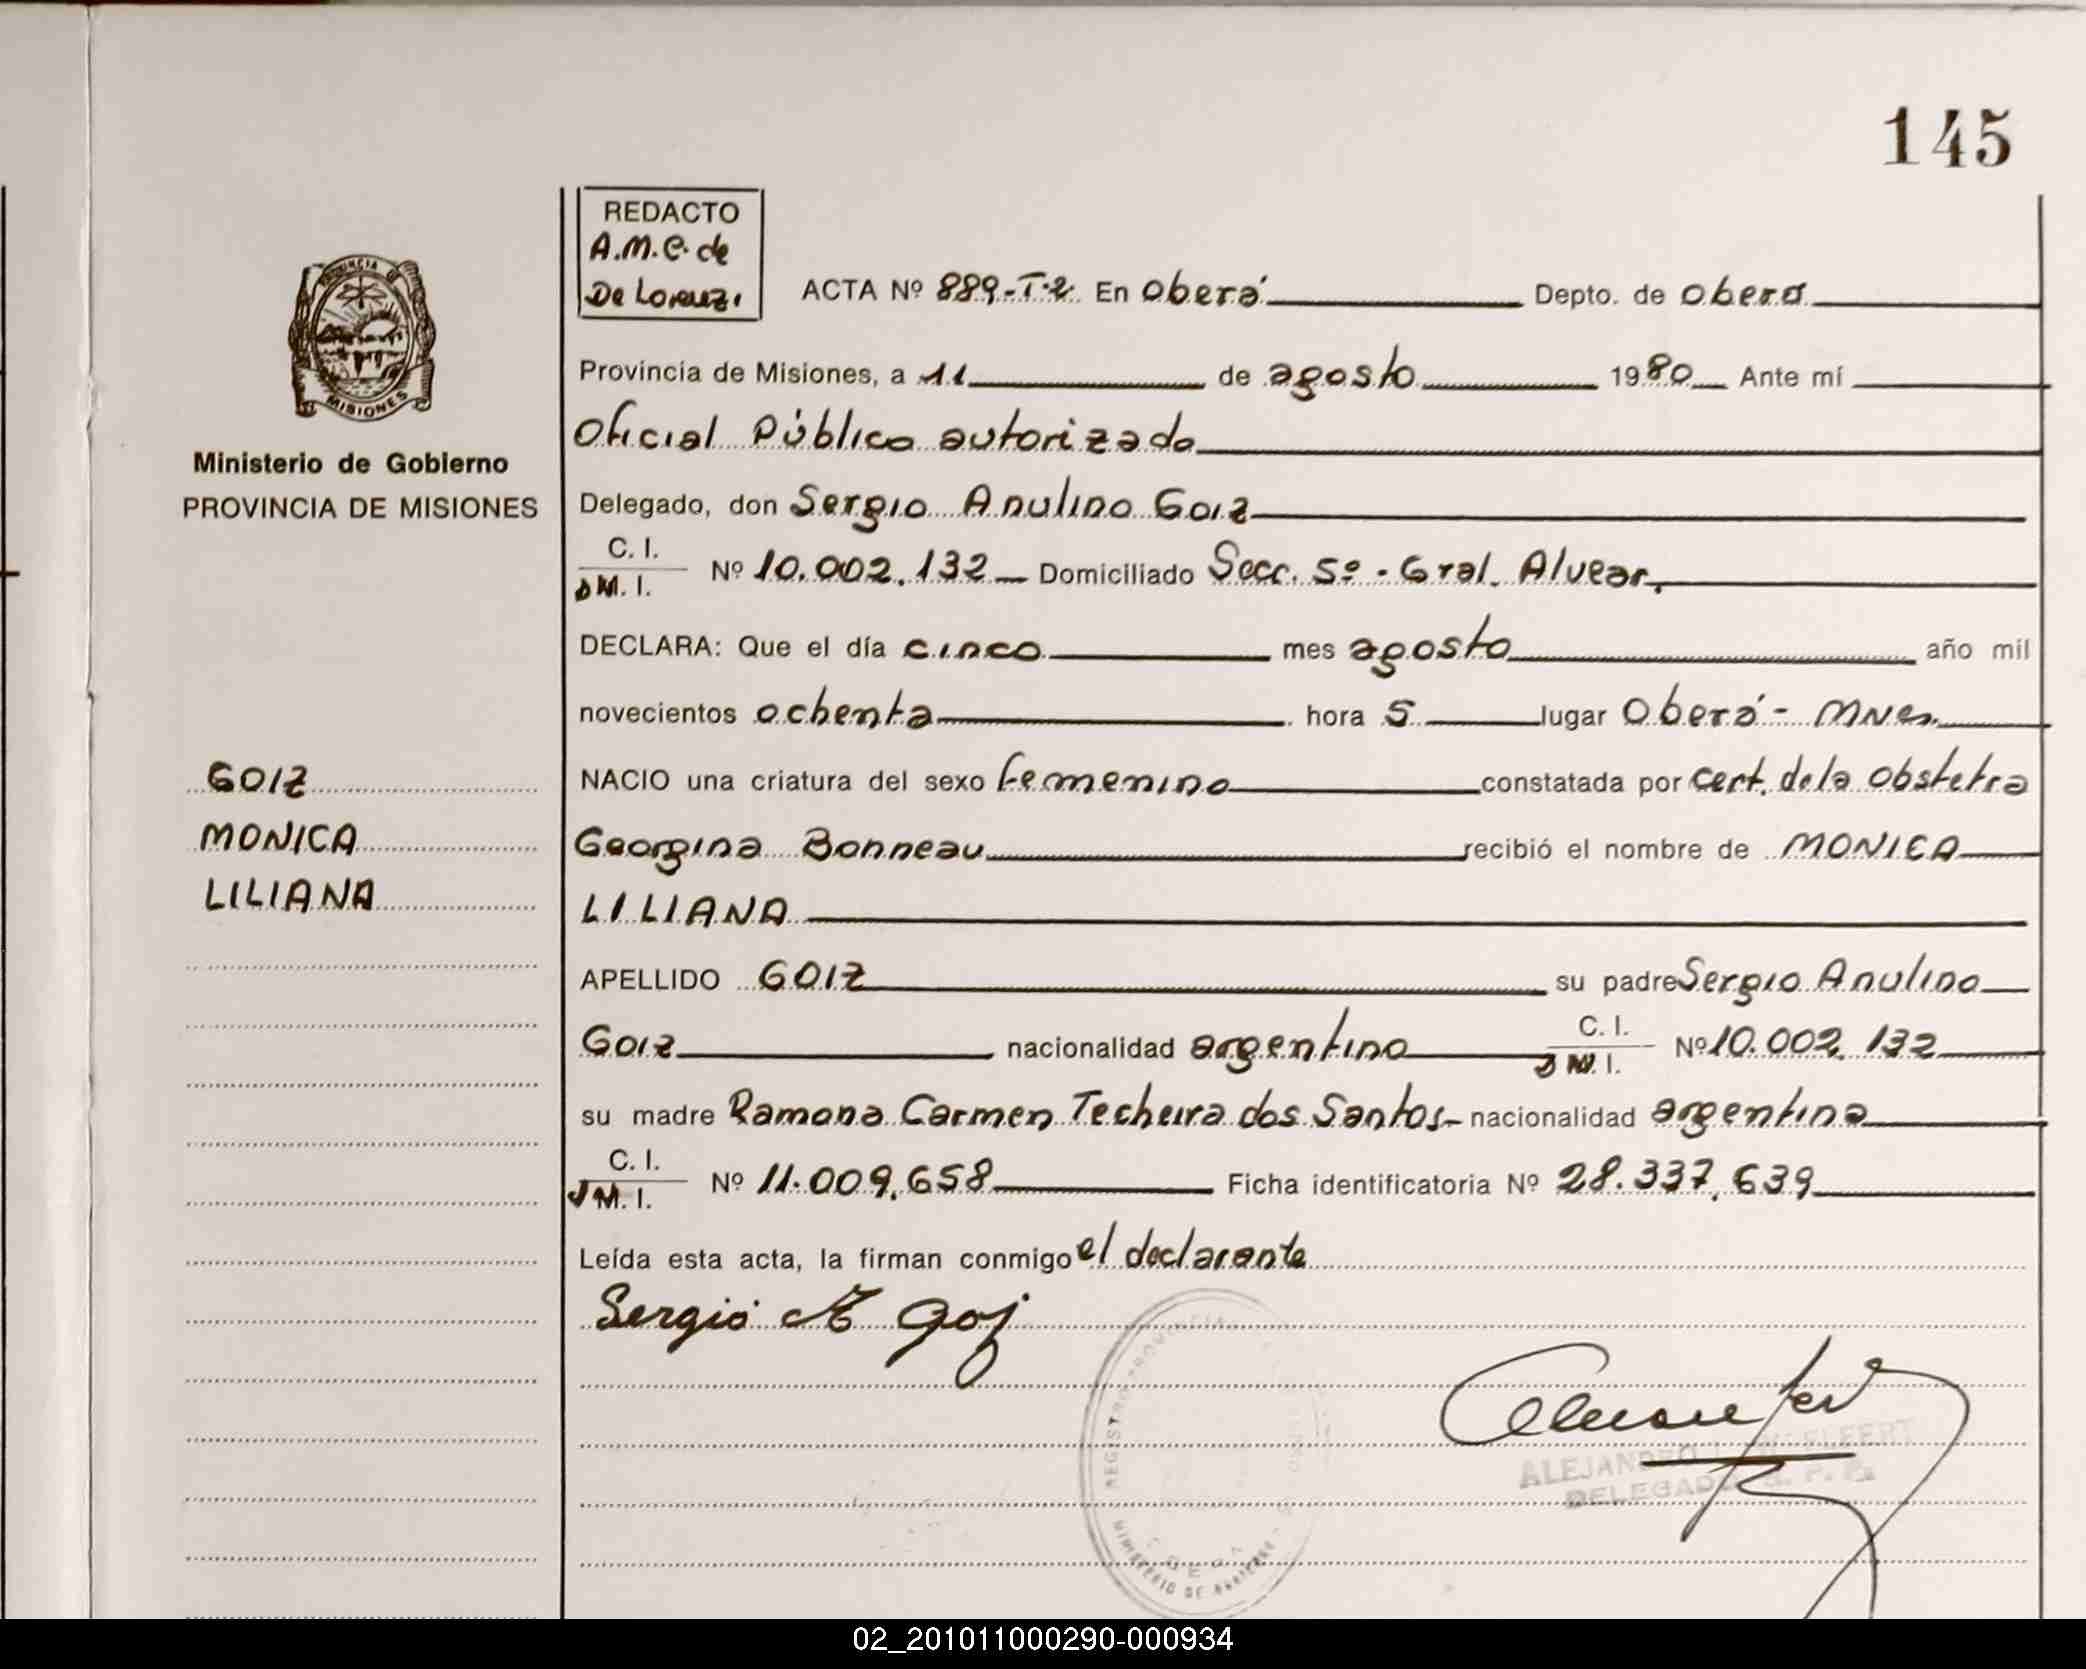 145
REDACTO
A.M.C. de
De Lorenzi
ACTA Nº 889-T.2. En Oberá Depto. de Oberá
Provincia de Misiones, a 11 de agosto 1980 Ante mí
Oficial Público autorizado
Ministerio de Gobierno
PROVINCIA DE MISIONES
Delegado, don Sergio Anulino Goiz
C. I.
D M. I. Nº 10.002.132 Domiciliado Secc. 5º - Gral. Alvear.
DECLARA: Que el día cinco mes agosto año mil
novecientos ochenta hora 5 lugar Oberá - Mnes.
GOIZ
MONICA
LILIANA
NACIO una criatura del sexo femenino constatada por cert. de la obstetra
Georgina Bonneau recibió el nombre de MONICA
LILIANA
APELLIDO GOIZ su padre Sergio Anulino
Goiz nacionalidad argentino C. I.
D M. I. Nº 10.002.132
su madre Ramona Carmen Techeira dos Santos - nacionalidad argentina
C. I.
M. I. Nº 11.009.658 Ficha identificatoria Nº 28.337.639
Leída esta acta, la firman conmigo el declarante
Sergio A Goi
PROVINCIA DE
MISIONES
MINISTERIO DE
ALEJANDRO
DELEGADO
02_201011000290-000934